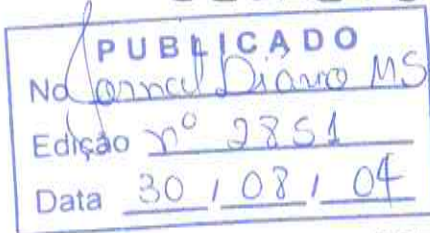 PUBLICADO
No Jornal Diário MS
Edição nº 2851
Data 30 / 08 / 04